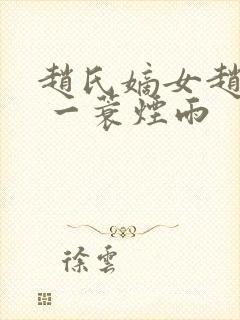 趙氏嫡女趙
一蓑煙雨
徐雲